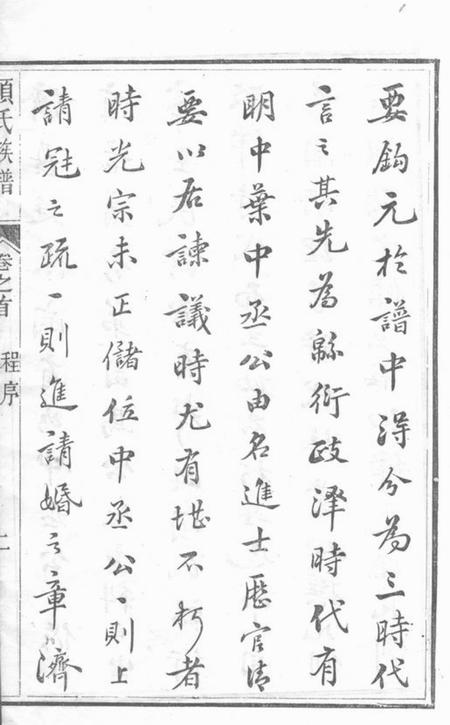 要鈎元於譜中得分為三時代
言之其先為緜衍政澤時代有
明中葉中丞公由名進士歷官清
要以居諫議時尤有堪不朽者
時光宗未正儲位中丞公一則上
請冠之疏一則進請婚之章濟
項氏族譜 卷之首 程序 二